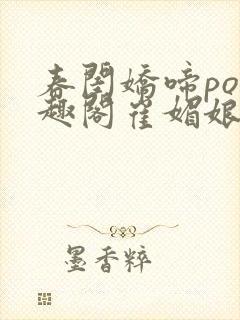 春閨嬌啼po
趣閣崔媚娘
墨香粹